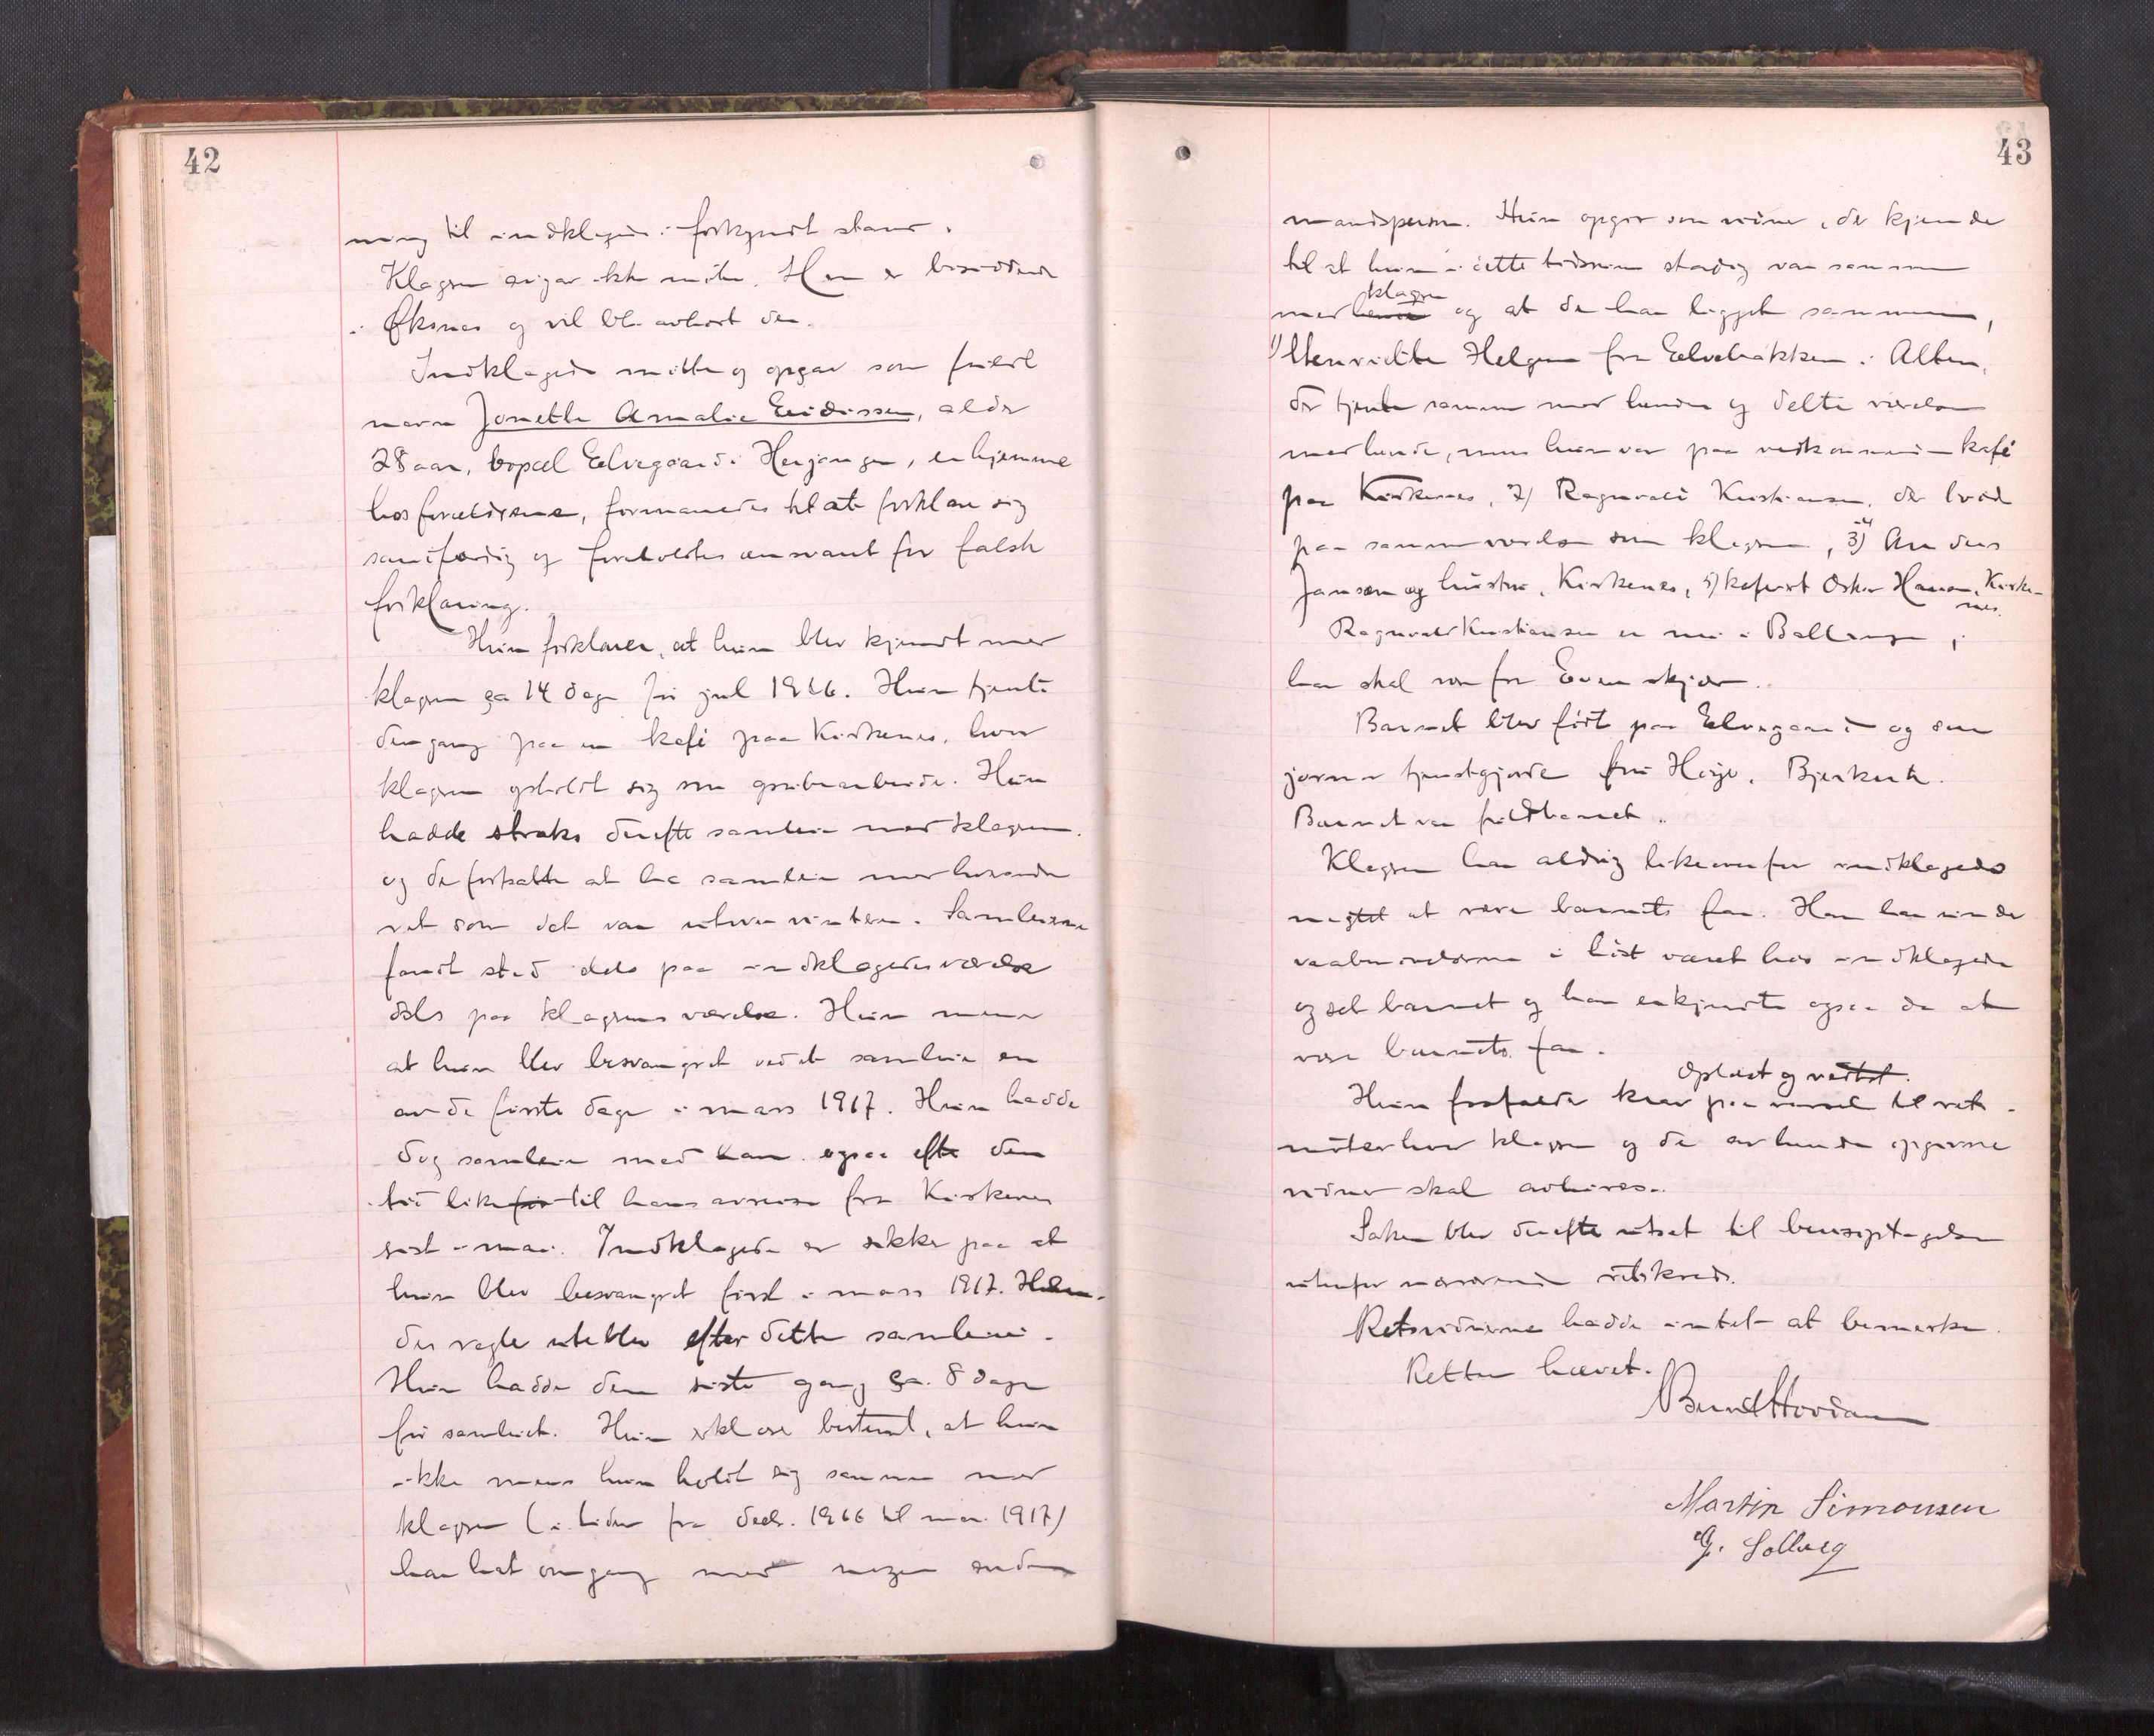 42
ning til indklagede i forkyndt stand.
Klageren avgav ikke møte. Han er bosiddende
i Øksnes og vil bli avhørt der.
Indklagede møtte og opgav som fuldt
navn Jonette Amalie Eidissen, alder
28 aar, bopæl Elvegaard i Herjangen, er hjemme
hos forældrene, formanedes til at forklare sig
sandfærdig og foreholdtes ansvaret for falsk
forklaring.
Hun forklarer, at hun blev kjendt med
klageren ca 14 dage før jul 1916. Hun tjente
dengang paa en kafé paa Kirkenes, hvor
klageren opholdt sig som grubearbeider. Hun
hadde straks derefter samleie med klageren
og de fortsatte at ha samleie med hverandre
ret som det var utover vinteren. Samleiene
fandt sted dels paa indklagedes værelse
dels paa klagerens værelse. Hun mener
at hun blev besvangret ved et samleie en
av de første dage i mars 1917. Hun hadde
dog samleie med ham ogsaa efter den
tid like før til hans avreise fra Kirkenes
sist i mai. Indklagede er sikker paa at
hun blev besvangret først i mars 1917. Hen-
des regler uteblev efter dette samleie.
Hun hadde dem siste gang ca. 8 dage
før samleiet. Hun erklærer bestemt, at hun
ikke mens hun holdt sig sammen med
klageren (i tiden fra decbr. 1916 til mai 1917)
har hat omgang med nogen anden
43
mandsperson. Hun opgir som vidner, der kjender
til at hun i dette tidsrum stadig var sammen
klageren
med og at de har ligget sammen,
1) Henriette Helgesen fra Elvebakken i Alten,
der tjente sammen med hende og delte værelse
med hende, mens hun var paa vedkommende kafé
paa Kirkenes, 2) Ragnvald Kristiansen, der bodde
paa samme værelse som klageren, 3) Anders
Jansen og hustru, Kirkenes, 5) kafévert Oskar Hansen, Kirke-
nes.
Ragnvald Kristiansen er nu i Ballangen,
han skal være fra Evenskjær.
Barnet blev født paa Elvegaard og som
jormor tjenstgjorde fru Høye, Bjerkvik.
Barnet var fuldbaaret.
Klageren har aldrig likeoverfor indklagede
negtet at være barnets far. Han har under
vaabenøvelserne i høst været hos indklagede
og set barnet og han erkjendte ogsaa da at
være barnets far.
Oplæst og vedtat.
Hun frafalder krav paa varsel til ret-
møter hvor klageren og de av hende opgivne
vidner skal avhøres.
Saken blev derefter utsat til bevisoptagelse
utenfor nærværende retskreds.
Retsvidnerne hadde intet at bemerke.
Retten hævet.
Martin Simonsen
G. Solberg